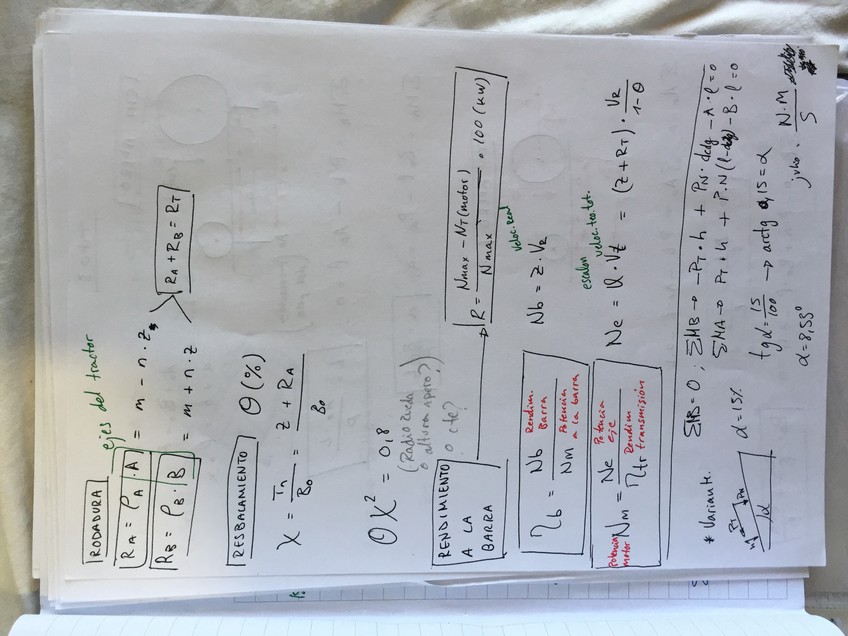 RODADURA
ejes del tractor
RA = ρA · A = m - n · z
RB = ρB · B = m + n · z
RA + RB = RT
RESBALAMIENTO θ (%)
X = Tn / B0 = z + RA / B0
θX² = 0,8
(Radio rueda
o altura apero?)
o cte?
RENDIMIENTO
A LA
BARRA
R = Nmax - NT (motor) / Nmax · 100 (kW)
ηb = Nb / Nm
Rendim.
Barra
Potencia
a la barra
Nb = z · VR
veloc. real
Potencia
motor
Nm = Ne / ηtr
Potencia
eje
Rendim
transmisión
escalon
veloc. teo. tot.
Ne = Q · Vt = (z + RT) · VR / 1-θ
* Variante.
ΣMB = 0 ; ΣMB → -PT · h + PN · - A · l = 0
ΣMA → PT · h + P·N (l - ) - B · l = 0
α = 15%
tg α = 15 / 100 → arctg 0,15 = α
α = 8,53°
α
N · M / S